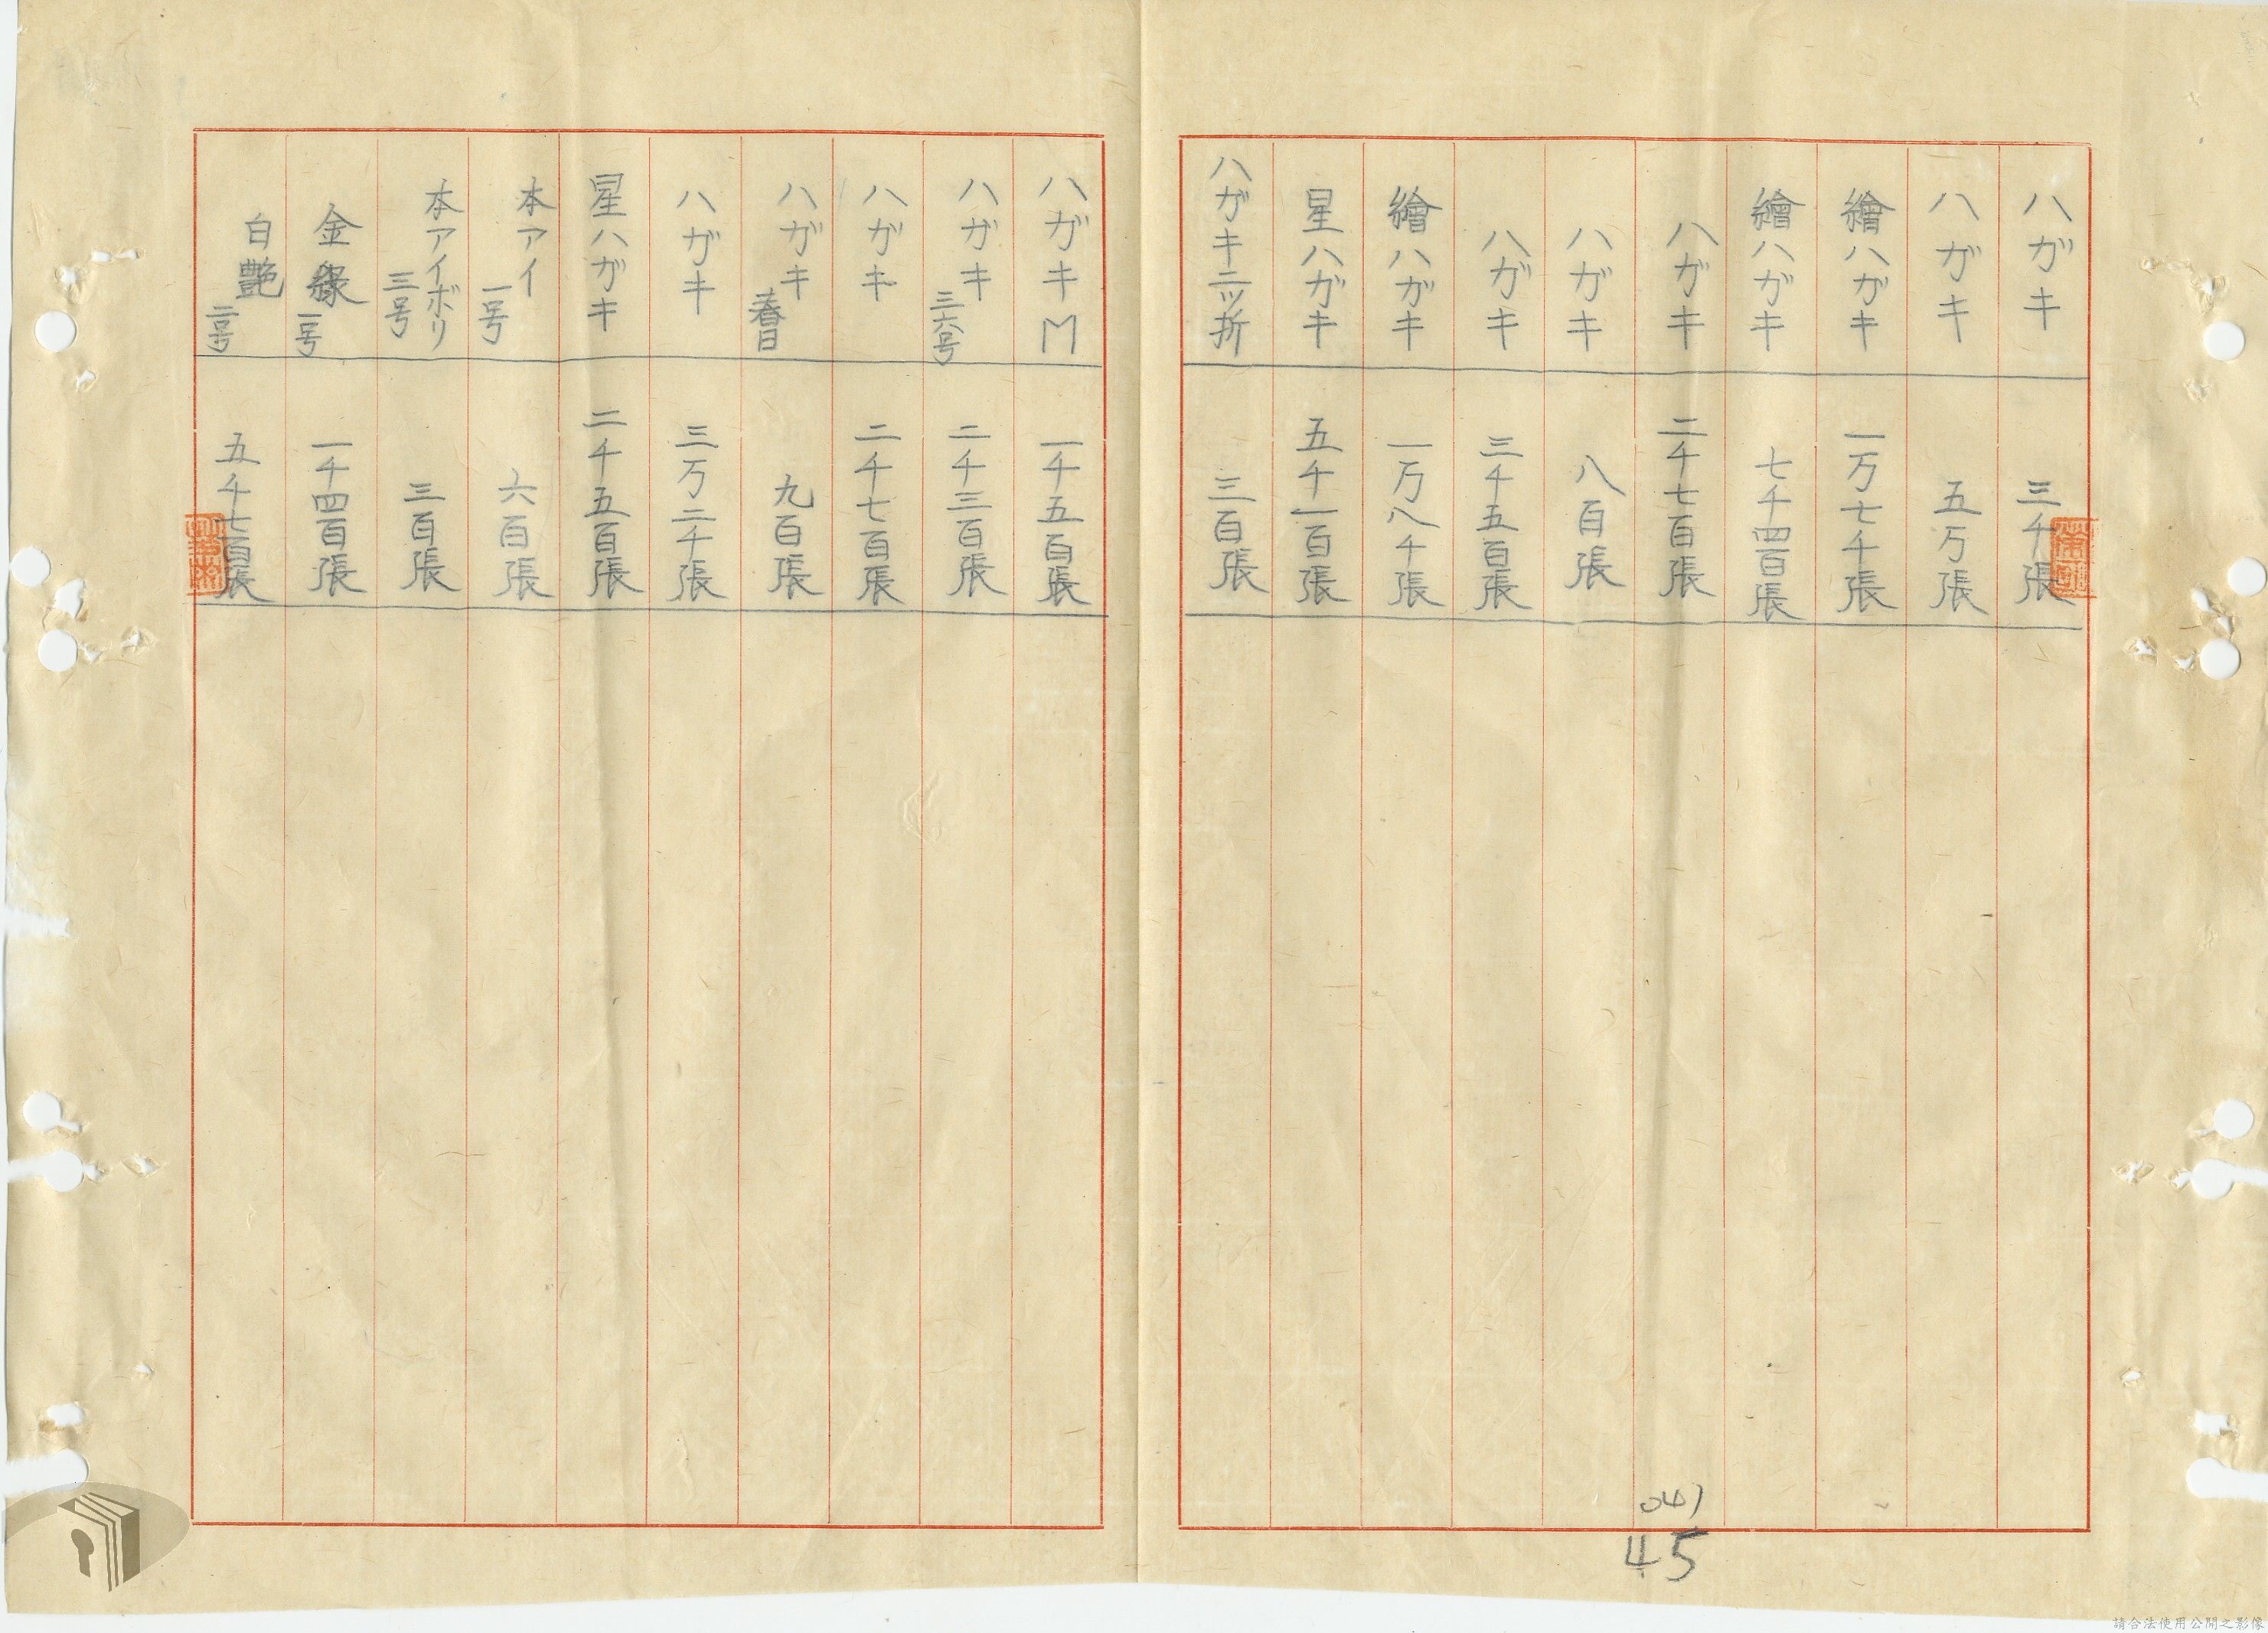 ハガキ 三千張
ハガキ 五万張
繪ハガキ 一万七千張
繪ハガキ 七千四百張
ハガキ 二千七百張
ハガキ 八百張
ハガキ 三千五百張
繪ハガキ 一万八千張
星ハガキ 五千一百張
ハガキ二ッ折 三百張
ハガキM 一千五百張
ハガキ三六号 二千三百張
ハガキ 二千七百張
ハガキ春日 九百張
ハガキ 三万二千張
星ハガキ 二千五百張
本アイ一号 六百張
本アイボリ三号 三百張
金緑一号 一千四百張
白艶二号 五千七百張
041
45
請合法使用公開之影像